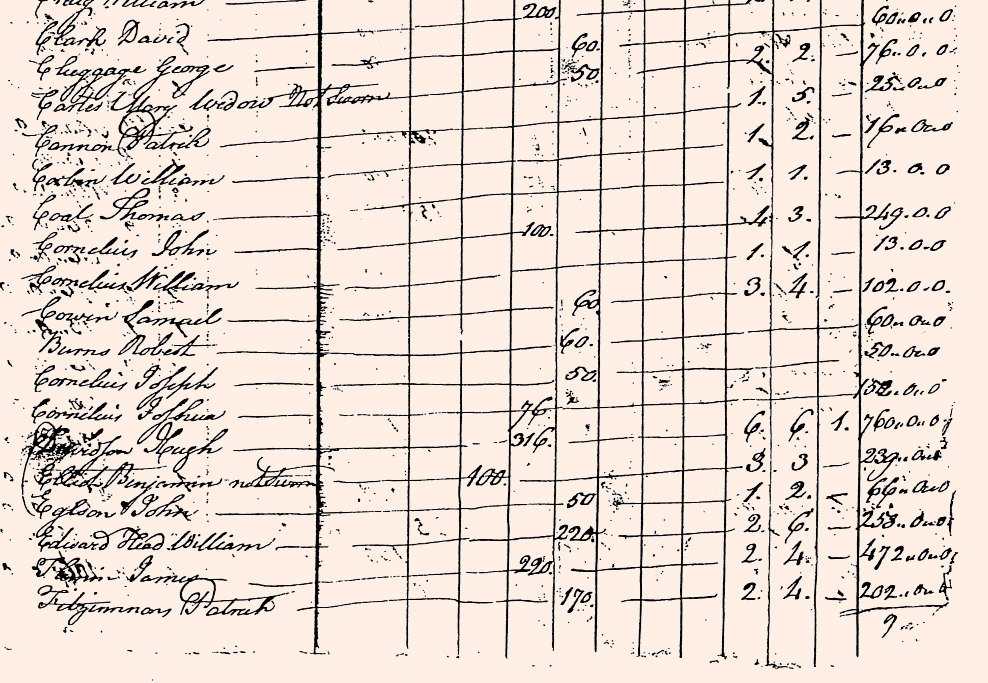 Craig William 200. 60..0..0
Clark David 60. 2. 2. — 76..0.0
Cluggage George 50. 25..0..0
Cartes Mary Widow Not Sworn 1. 5. —
Cannon Patrick 1. 2. — 16..0..0
Corbin William 1. 1. — 13.0.0
Coal Thomas 100. 4 3. — 249.0.0
Cornelius John 1. 1. 13.0.0
Cornelius William 60. 3. 4. — 102.0.0.
Cowin Samael 60. 60..0..0
Burns Robest 50. 50..0..0
Cornelius Joseph 76 152..0..0
Cornelius Joshua 316. 6. 6. 1. 760..0..0
Davidson Hugh 3. 3 — 239..0..0
Elliot Benjamin not sworn 100. 50 1. 2. 66..0..0
Egldon John 220. 2. 6. — 253..0..0
Edward Head William 290. 2 4. — 472..0..0
James
Fitzimmons Patrick 170. 2. 4. 202..0..0
9